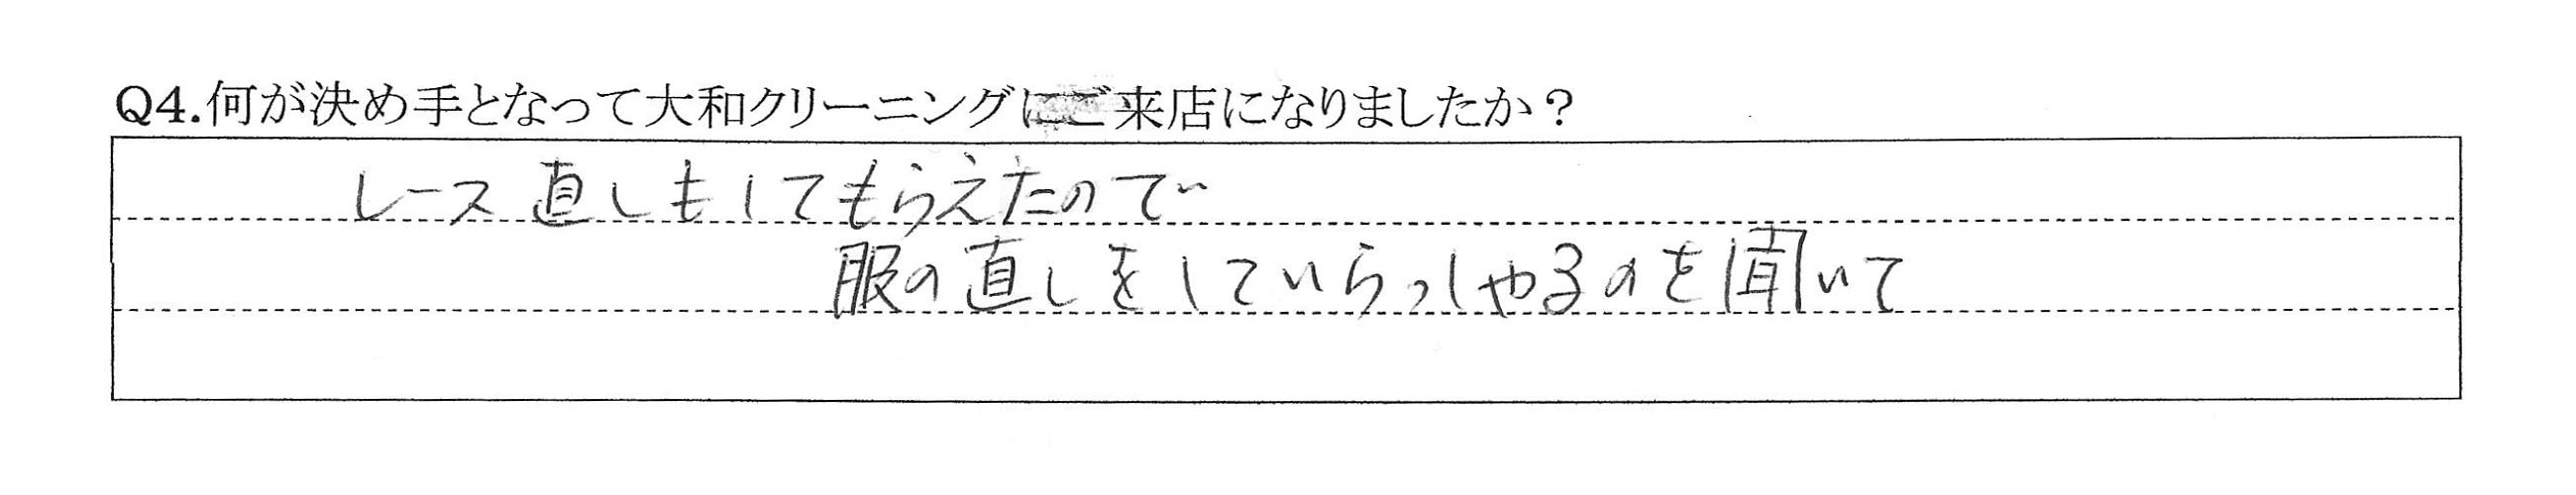 Q4.何が決め手となって大和クリーニングにご来店になりましたか？
レース直しもしてもらえたので
服の直しをしていらっしゃるのを聞いて